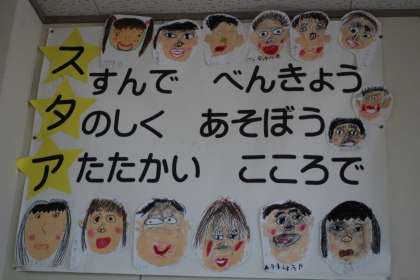 スすんで　べんきょう
タのしく　あそぼう
アたたかい　こころで